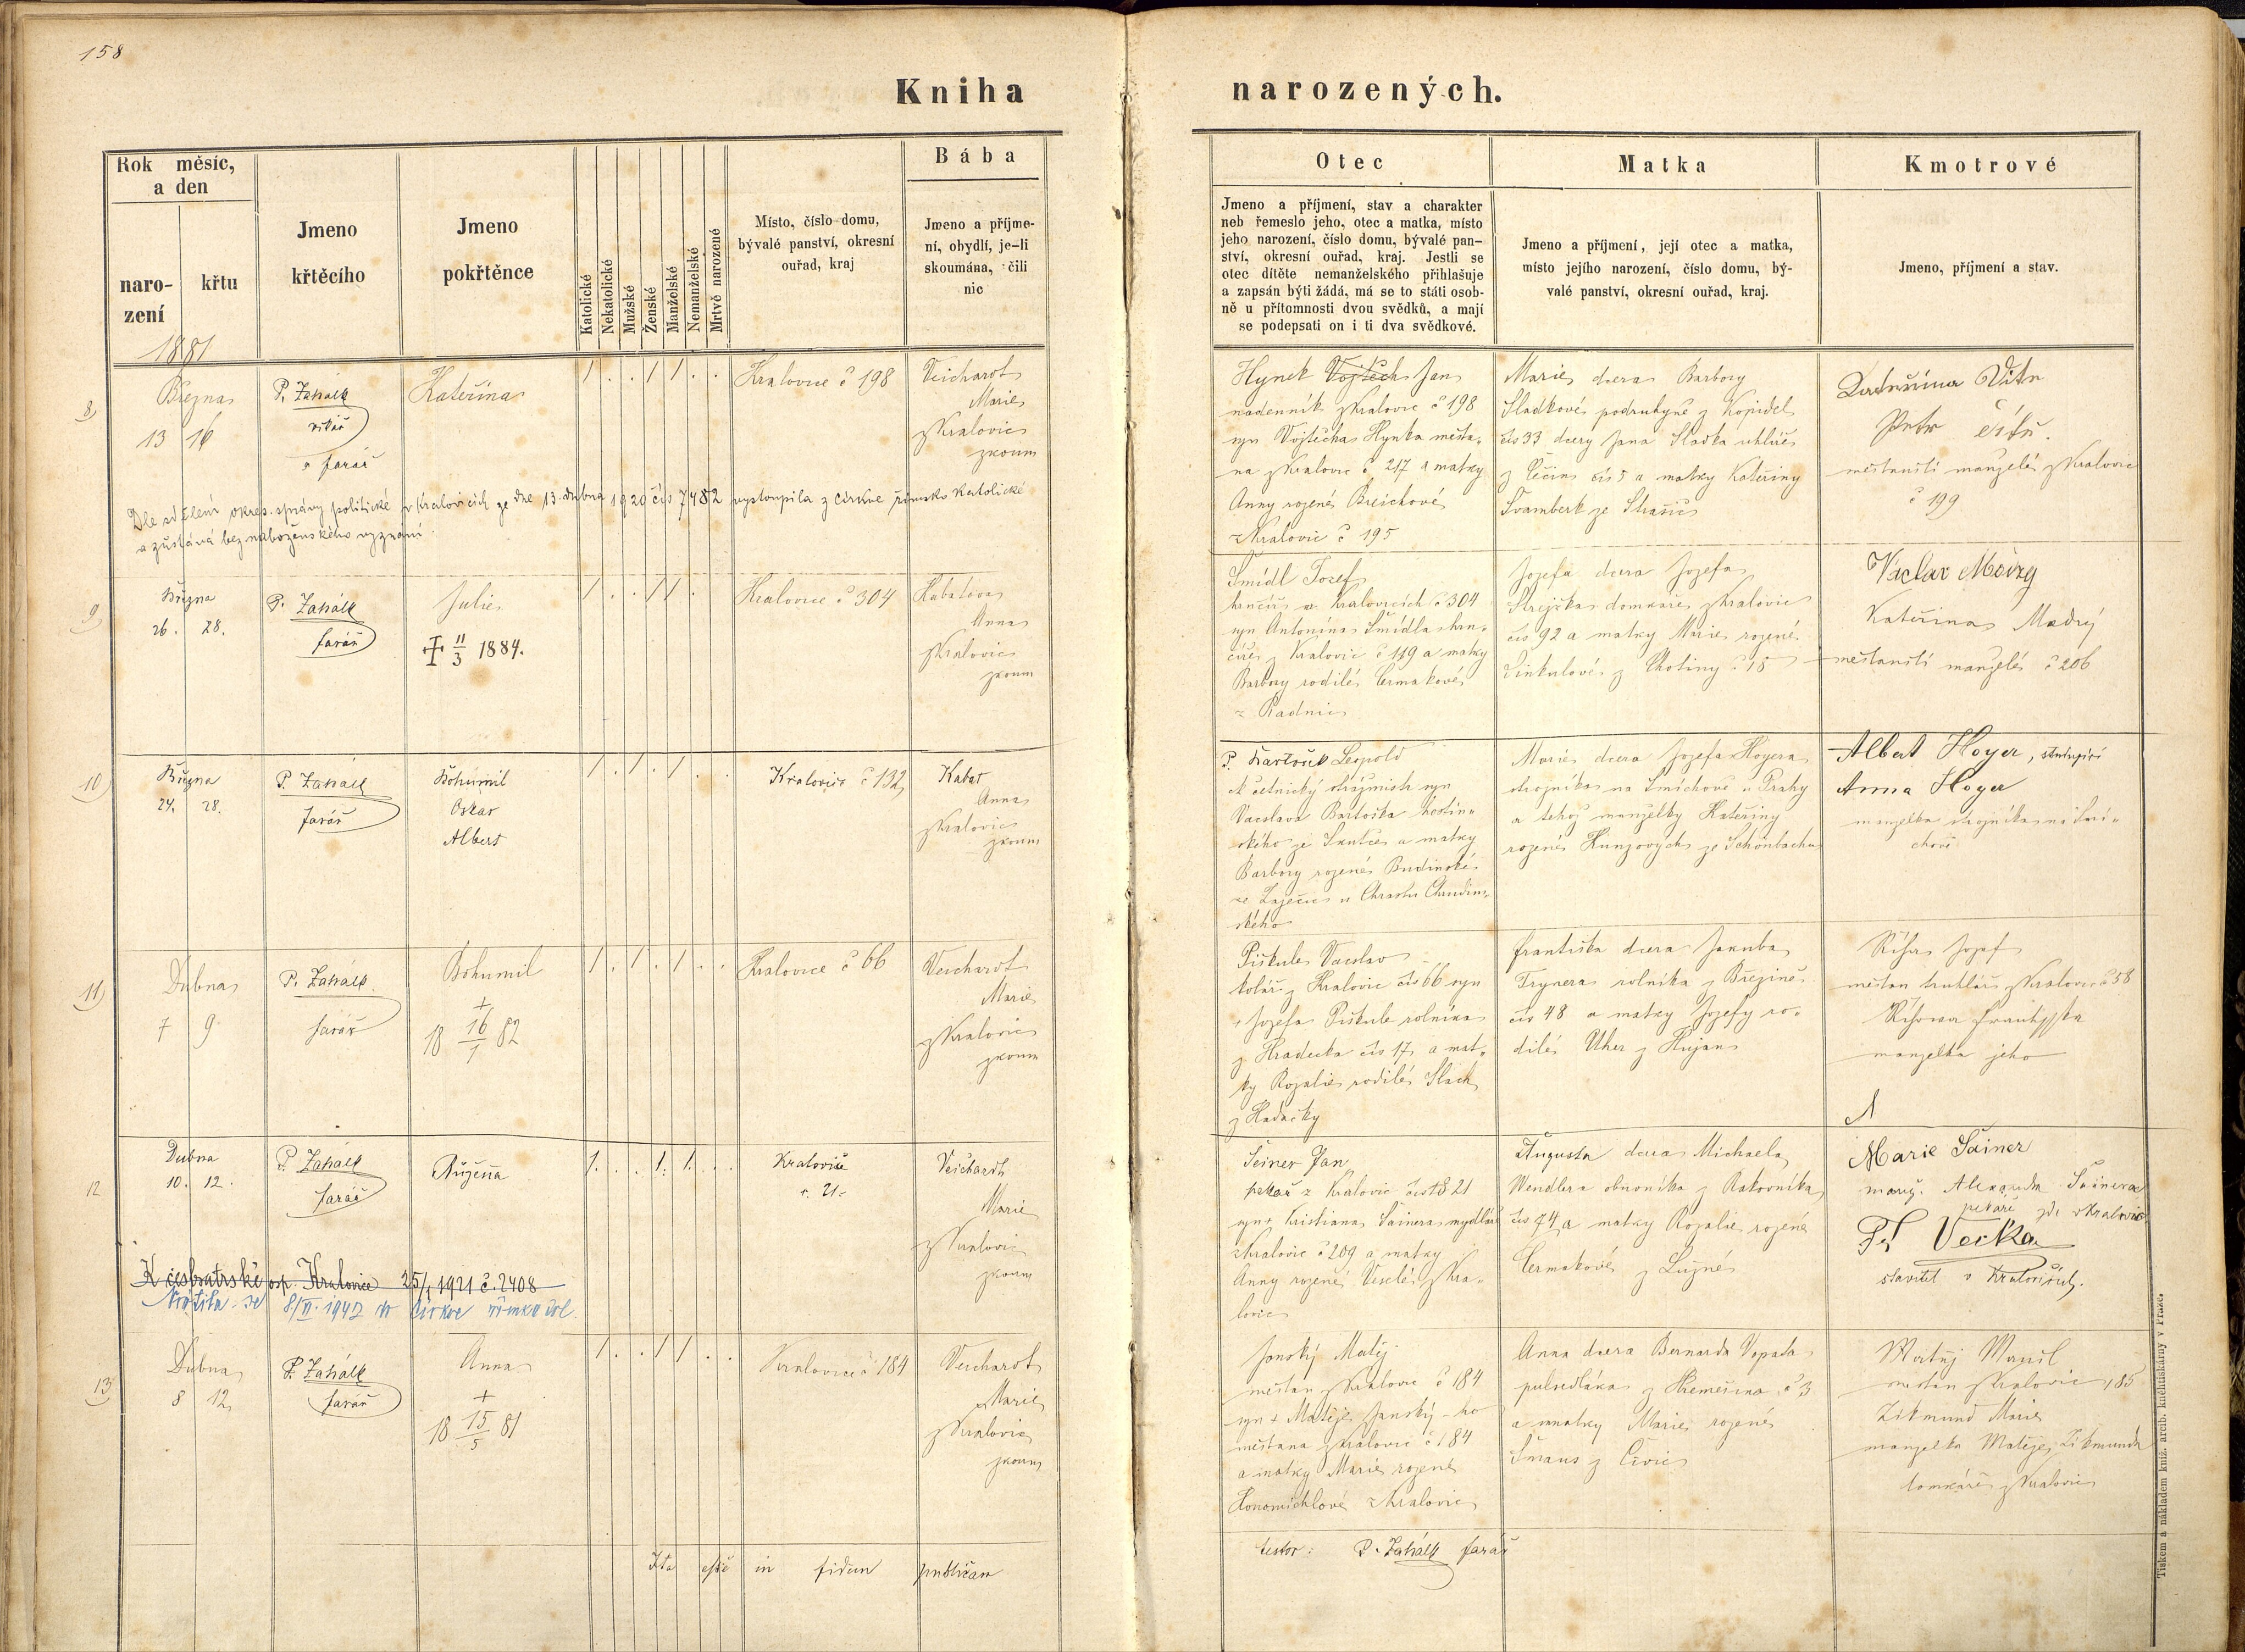 158
Kniha narozených.
Rok měsíc, a den
narození
křtu
Jmeno křtěcího
Jmeno pokřtěnce
Katolické
Nekatolické
Mužské
Ženské
Manželské
Nemanželské
Mrtvě narozené
Místo, číslo domu,
bývalé panství, okresní
ouřad, kraj
Bába
Jmeno a příjme-
ní, obydlí, je-li
skoumána, čili
nic
Otec
Jmeno a příjmení, stav a charakter
neb řemeslo jeho, otec a matka, místo
jeho narození, číslo domu, bývalé pan-
ství, okresní ouřad, kraj. Jestli se
otec dítěte nemanželského přihlašuje
a zapsán býti žádá, má se to státi osob-
ně u přítomnosti dvou svědků, a mají
se podepsati on i ti dva svědkové.
Matka
Jmeno a příjmení, její otec a matka,
místo jejího narození, číslo domu, bý-
valé panství, okresní ouřad, kraj.
Kmotrové
Jmeno, příjmení a stav.
1881
8)
Března
13 16
P. Zahálk
farář
Kateřina
1 . . 1 1 . .
Kralovice č 198
Veichardt
Marie
z Kralovic
zkoum
Hynek Vojtěch Jan
nadenník z Kralovic č 198
syn Vojtěcha Hynka mešťa-
na z Kralovic č 217 a matky
Anny rozené
z Kralovic č 195
Marie dcera Barbory
Sladkové podruhyně z Kopidel
čís 33 dcery Jana Sladka uhlíře
z čís 5 a matky Kateřiny
Švamberk ze Strašic
Kateřina
Petr
mešťanští manželé z Kralovic
č 199
Dle sdělení okres. správy politické v Kralovicích ze dne 13. dubna 1920 čís 7482 vystoupila z církve římsko katolické
a zůstává bez náboženského vyznání.
9)
Března
26. 28.
P. Zahálk
farář
Julie
11/3 1884.
1 . . 1 1 .
Kralovice č 304
Kabatova
Anna
z Kralovic
zkoum
Šmídl Josef
hrnčíř v Kralovicích č 304
syn Antonína Šmídla hrn-
číře z Kralovic č 119 a matky
Barbory rodilé Čermakové
z Radnic
Josefa dcera Josefa
Strejčka domkáře z Kralovic
čís 92 a matky Marie rozené
Sinkulové z Chotiny č 15
Václav Moudrý
Kateřina Modrý
mešťanští manželé č 206
10)
Března
24. 28.
P. Zahálk
farář
Bohumil
Oskar
Albert
1 . 1 . 1 . .
Kralovice č 132
Kabat
Anna
z Kralovic
zkoum
P. Bartošek Leopold
četnický strážmistr syn
Vaclava Bartoška
ze Skutče a matky
Barbory rozené Budinské
ze Zaječic u Chrastu Chrudim-
ského
Marie dcera Josefa Hoyera
strojníka na Smíchově u Prahy
a téhož manželky Kateřiny
rozené Kunzových ze Schönbachu
Albert Hoyer, studující
Anna Hoyer
manželka strojníka na Smí-
chově
11)
Dubna
7 9
P. Zahálk
farář
Bohumil
+
18 16/1 82
1 . 1 . 1 . .
Kralovice č 66
Veichardt
Marie
z Kralovic
zkoum
Piskule Vaclav
kolář z Kralovic čís 66 syn
+ Josefa Piskule rolníka
z Hradecka čís 17 a mat-
ky Rozalie rodilé Slach
z Hadačky
Františka dcera Jakuba
Trynera rolníka z Březiné
čís 48 a matky Josefy ro-
dilé Uher z Hujan
Říha Josef
mešťan truhlář z Kralovic č 58
Říhova Františka
manželka jeho
12
Dubna
10. 12.
P. Zahálk
farář
Růžena
1. . . 1. 1. . .
Kralovice
č. 21.
Veichardt
Marie
z Kralovic
zkoum
Šeiner Jan
pekař z Kralovic čís 21
syn + Kristiana Šainera mydláře
z Kralovic č 209 a matky
Anny rozené Veselé z Kra-
lovic
Augusta dcera Michaela
Wendlera obuvníka z Rakovníka
čís 74 a matky Rozalie rozené
Čermakové z Lužné
Marie Šainer
manž. Alexandra Šainera
pekaře zde v Kralovic
Fr Vecka
stavitel v Kralovicích.
K českobratrské osp. Kralovice 25/1 1921 č. 2408
Vrátila se 8/VI. 1942 do církve římskokatol.
13
Dubna
8 12
P. Zahálk
farář
Anna
+
18 15/5 81
1 . . 1 1 . .
Kralovice č 184
Veichardt
Marie
z Kralovic
zkoum
Janský Matěj
mešťan z Kralovic č 184
syn + Matěje Janský-ho
mešťana z Kralovic č 184
a matky Marie rozené
Honomichlové z Kralovic
Anna dcera Bernarda Vopata
pulsedláka z Hřemešína č 3
a matky Marie rozené
Šmaus z Čivic
Matěj
mešťan z Kralovic 185
Zikmund Marie
manželka Matěje Zikmunda
domkáře z Kralovic
Ita esse in fidem publicam
testor: P. Zahálk farář
Tiskem a nákladem kníž. arcib. knihtiskárny v Praze.